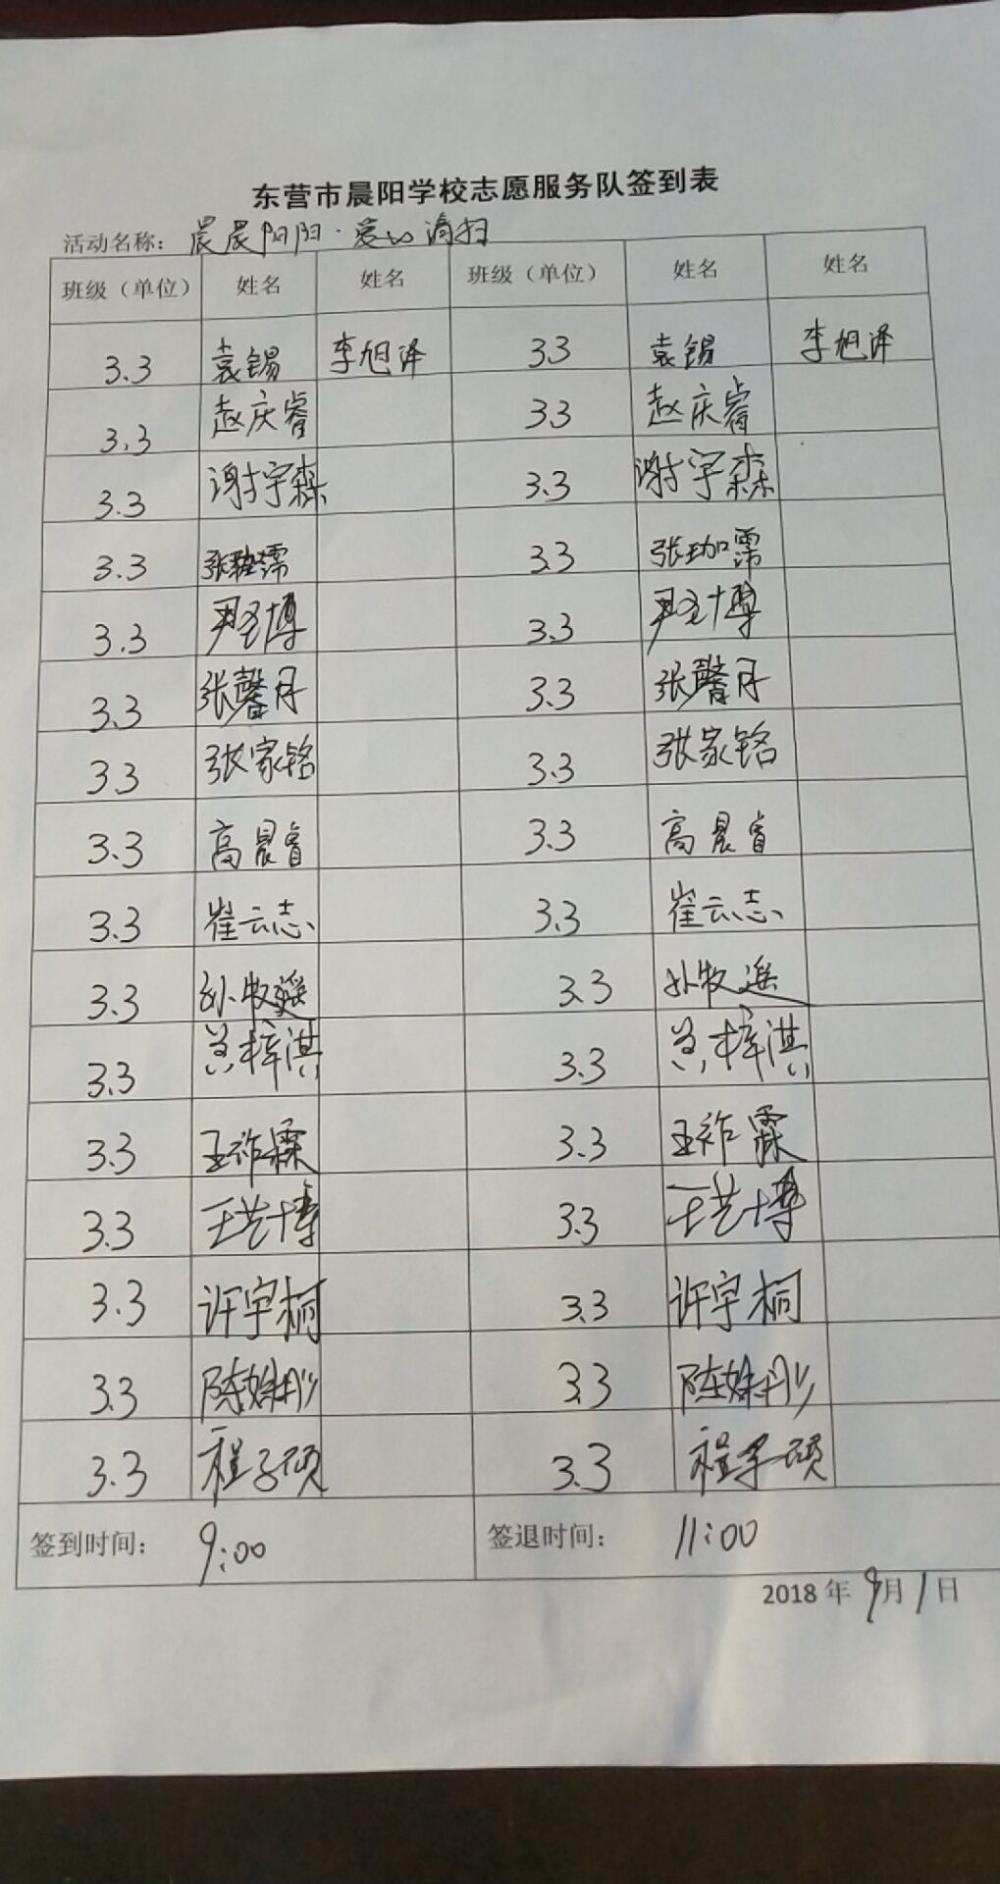 东营市晨阳学校志愿服务队签到表
活动名称：晨晨阳阳·爱心清扫
班级（单位） 姓名 姓名 班级（单位） 姓名 姓名
3.3 袁锡 李旭泽 3.3 袁锡 李旭泽
3.3 赵庆睿 3.3 赵庆睿
3.3 谢宇森 3.3 谢宇森
3.3 张珈霈 3.3 张珈霈
3.3 尹圣博 3.3 尹圣博
3.3 张馨月 3.3 张馨月
3.3 张家铭 3.3 张家铭
3.3 高晨睿 3.3 高晨睿
3.3 崔云志 3.3 崔云志
3.3 孙牧遥 3.3 孙牧遥
3.3 梓淇 3.3 梓淇
3.3 王祚霖 3.3 王祚霖
3.3 王艺博 3.3 王艺博
3.3 许宇桐 3.3 许宇桐
3.3 陈姝彤 3.3 陈姝彤
3.3 程子硕 3.3 程子硕
签到时间： 9:00 签退时间： 11:00
2018 年 9月 1日